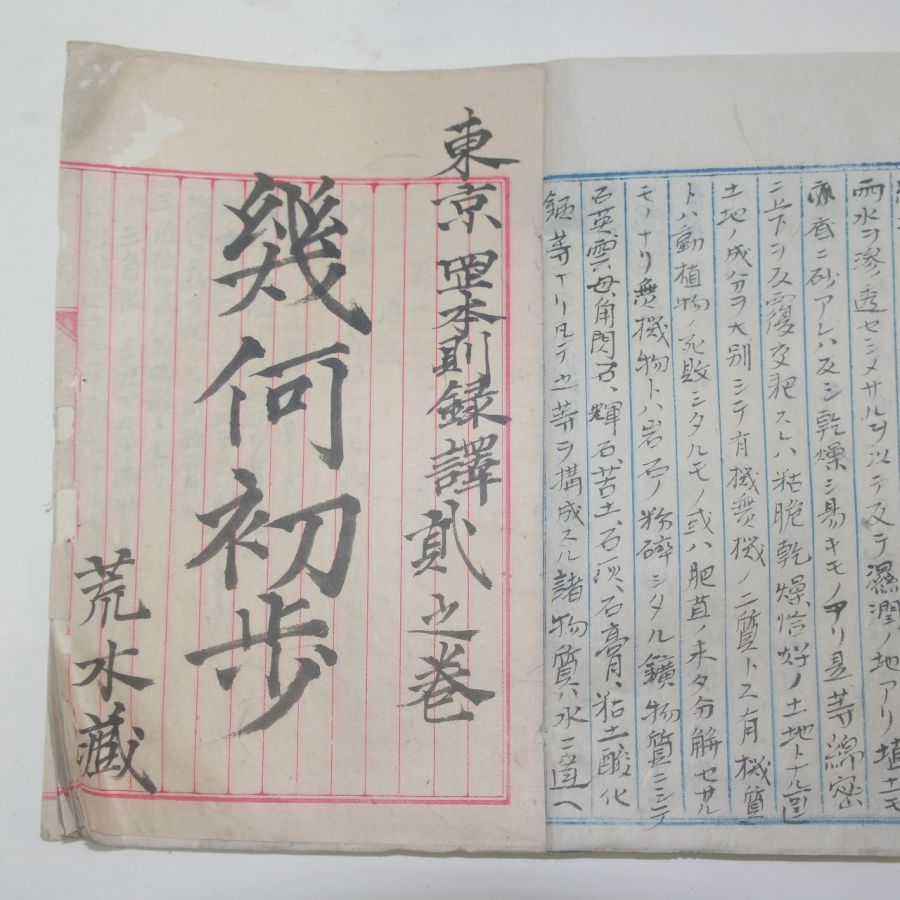 雨水ヲ滲透セシメサルヲ以テ反テ濕潤ノ地アリ埴土モ
亦底ニ砂アレハ反シ乾燥シ易キモノアリ是等綿密
ニ上下ヲ反覆交耙スレハ粘脆乾燥恰好ノ土地トナル
土地ノ成分ヲ大別シテ有機無機ノ二質トス有機質
トハ動植物ノ死敗シタルモノ或ハ肥苴ノ未タ分解セサル
モノナリ無機物トハ岩石ノ粉碎シタル鑛物質ニシテ
石英雲母角閃石、輝石、苦土、石灰、石膏、粘土酸化
銕等ナリ凡テ此等ヲ構成スル諸物質ハ水ニ
東京 岡本則録譯 貳之巻
幾何初歩
荒木藏